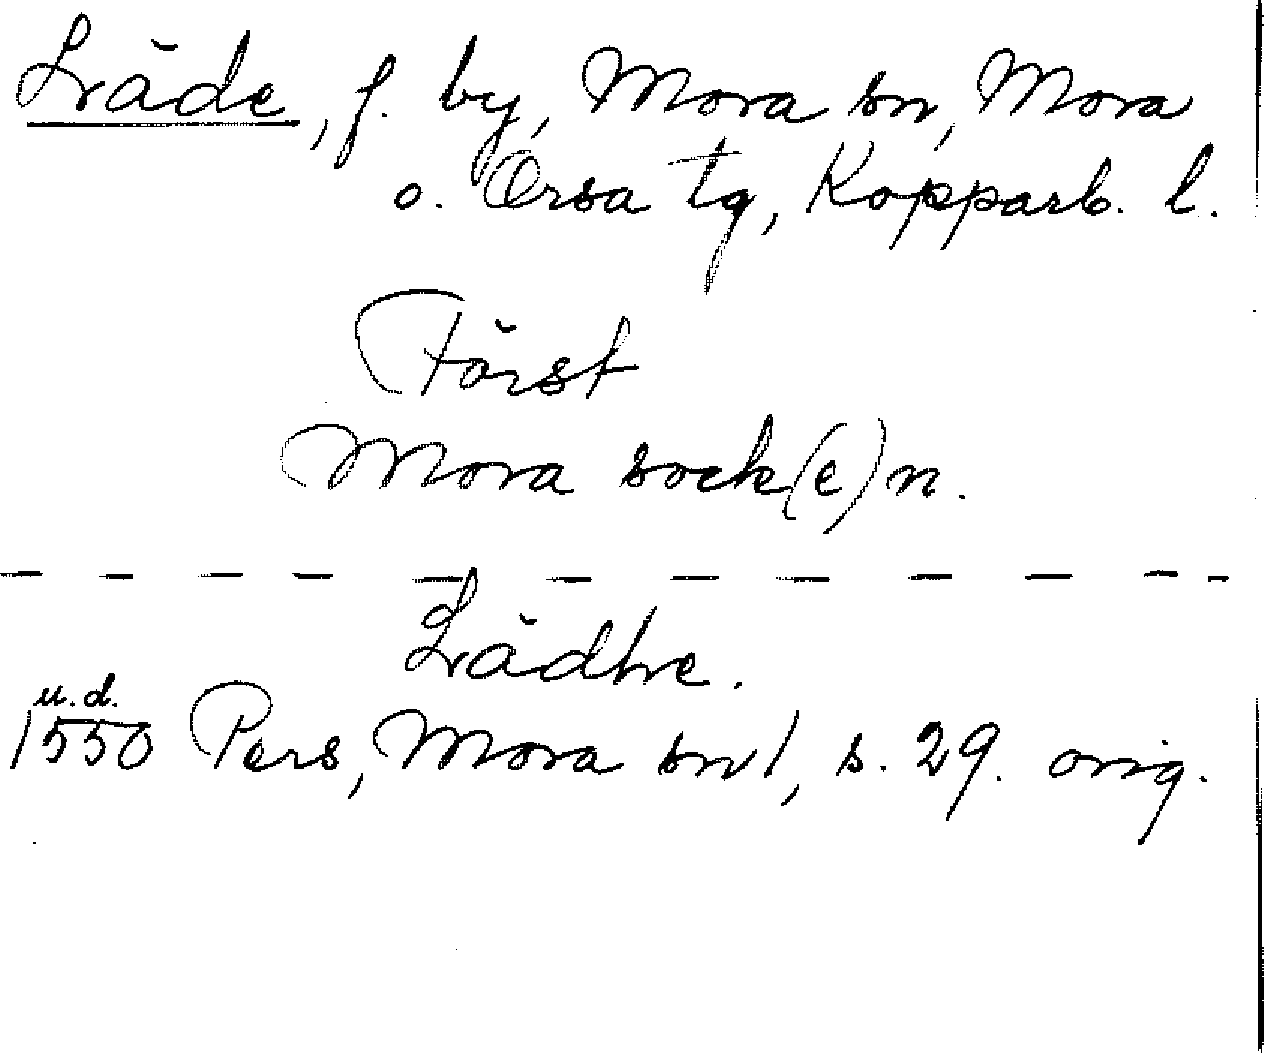 Låde, f. by, Mora sn, Mora
o. Orsa tg, Kopparb. l.
Först
Mora sock(e)n.
Lådhe.
u.d.
1550 Pers, Mora snl, s. 29. orig.